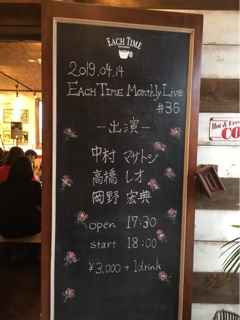 EACH TIME
2019.04.14
EACH TIME MONTHLY LIVE
#36
－出演－
中村 マサトシ
高橋 レオ
岡野 宏典
open 17:30
start 18:00
¥3,000 + 1drink
Hot & Fre
CO